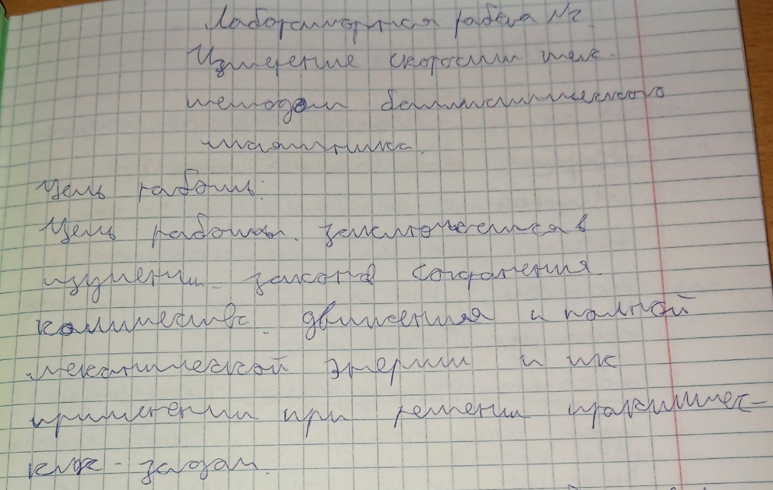 Лабораторная работа №2.
Измерение скорости тел
методом баллистического
маятника.
Цель работы:
Цель работы заключается в
изучении законов сохранения
количества движения и полной
механической энергии и их
применении при решении практичес-
ких задач.